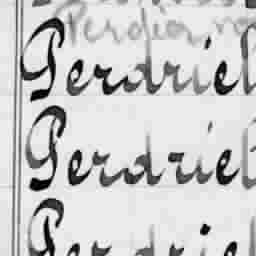 Perdriel
Perdriel
Perdriel